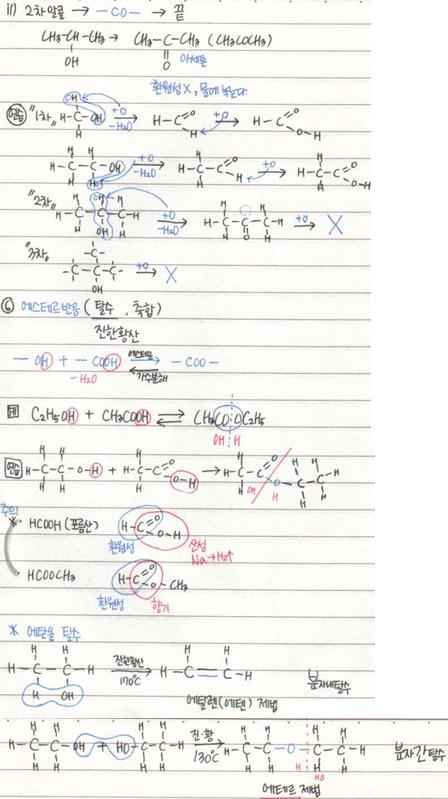 ii) 2차알콜 → -CO- → 끝
CH₃-CH-CH₃ → CH₃-C-CH₃ (CH₃COCH₃)
OH O 아세톤
환원성X, 물에 녹는다
"1차" H-C-OH +O -H₂O → H-C=O H +O → H-C=O O-H
H-C-C-OH +O -H₂O → H-C-C=O H +O → H-C-C=O O-H
"2차" H-C-C-C-H +O -H₂O → H-C-C-C-H +O → X
OH O
"3차" -C-C-C- +O → X
OH
⑥ 에스테르반응 (탈수, 축합)
진한황산
-OH + -COOH 에스테르 ⇄ 가수분해 -COO-
-H₂O
예 C₂H₅OH + CH₃COOH ⇄ CH₃CO:OC₂H₅
OH:H
연습 H-C-C-O-H + H-C-C=O O-H → H-C-C=O O-C-C-H
OH H
주의
※ HCOOH (포름산) H-C=O O-H
환원성 산성
Na → H₂↑
· HCOOCH₃ H-C=O O-CH₃
환원성 향기
※ 에탄올 탈수
H-C-C-H 진한황산 170℃ → H-C=C-H 분자내탈수
H OH
에틸렌(에텐) 제법
H-C-C-OH + HO-C-C-H 진·황 130℃ → H-C-C-O-C-C-H 분자간탈수
H HO
에테르 제법